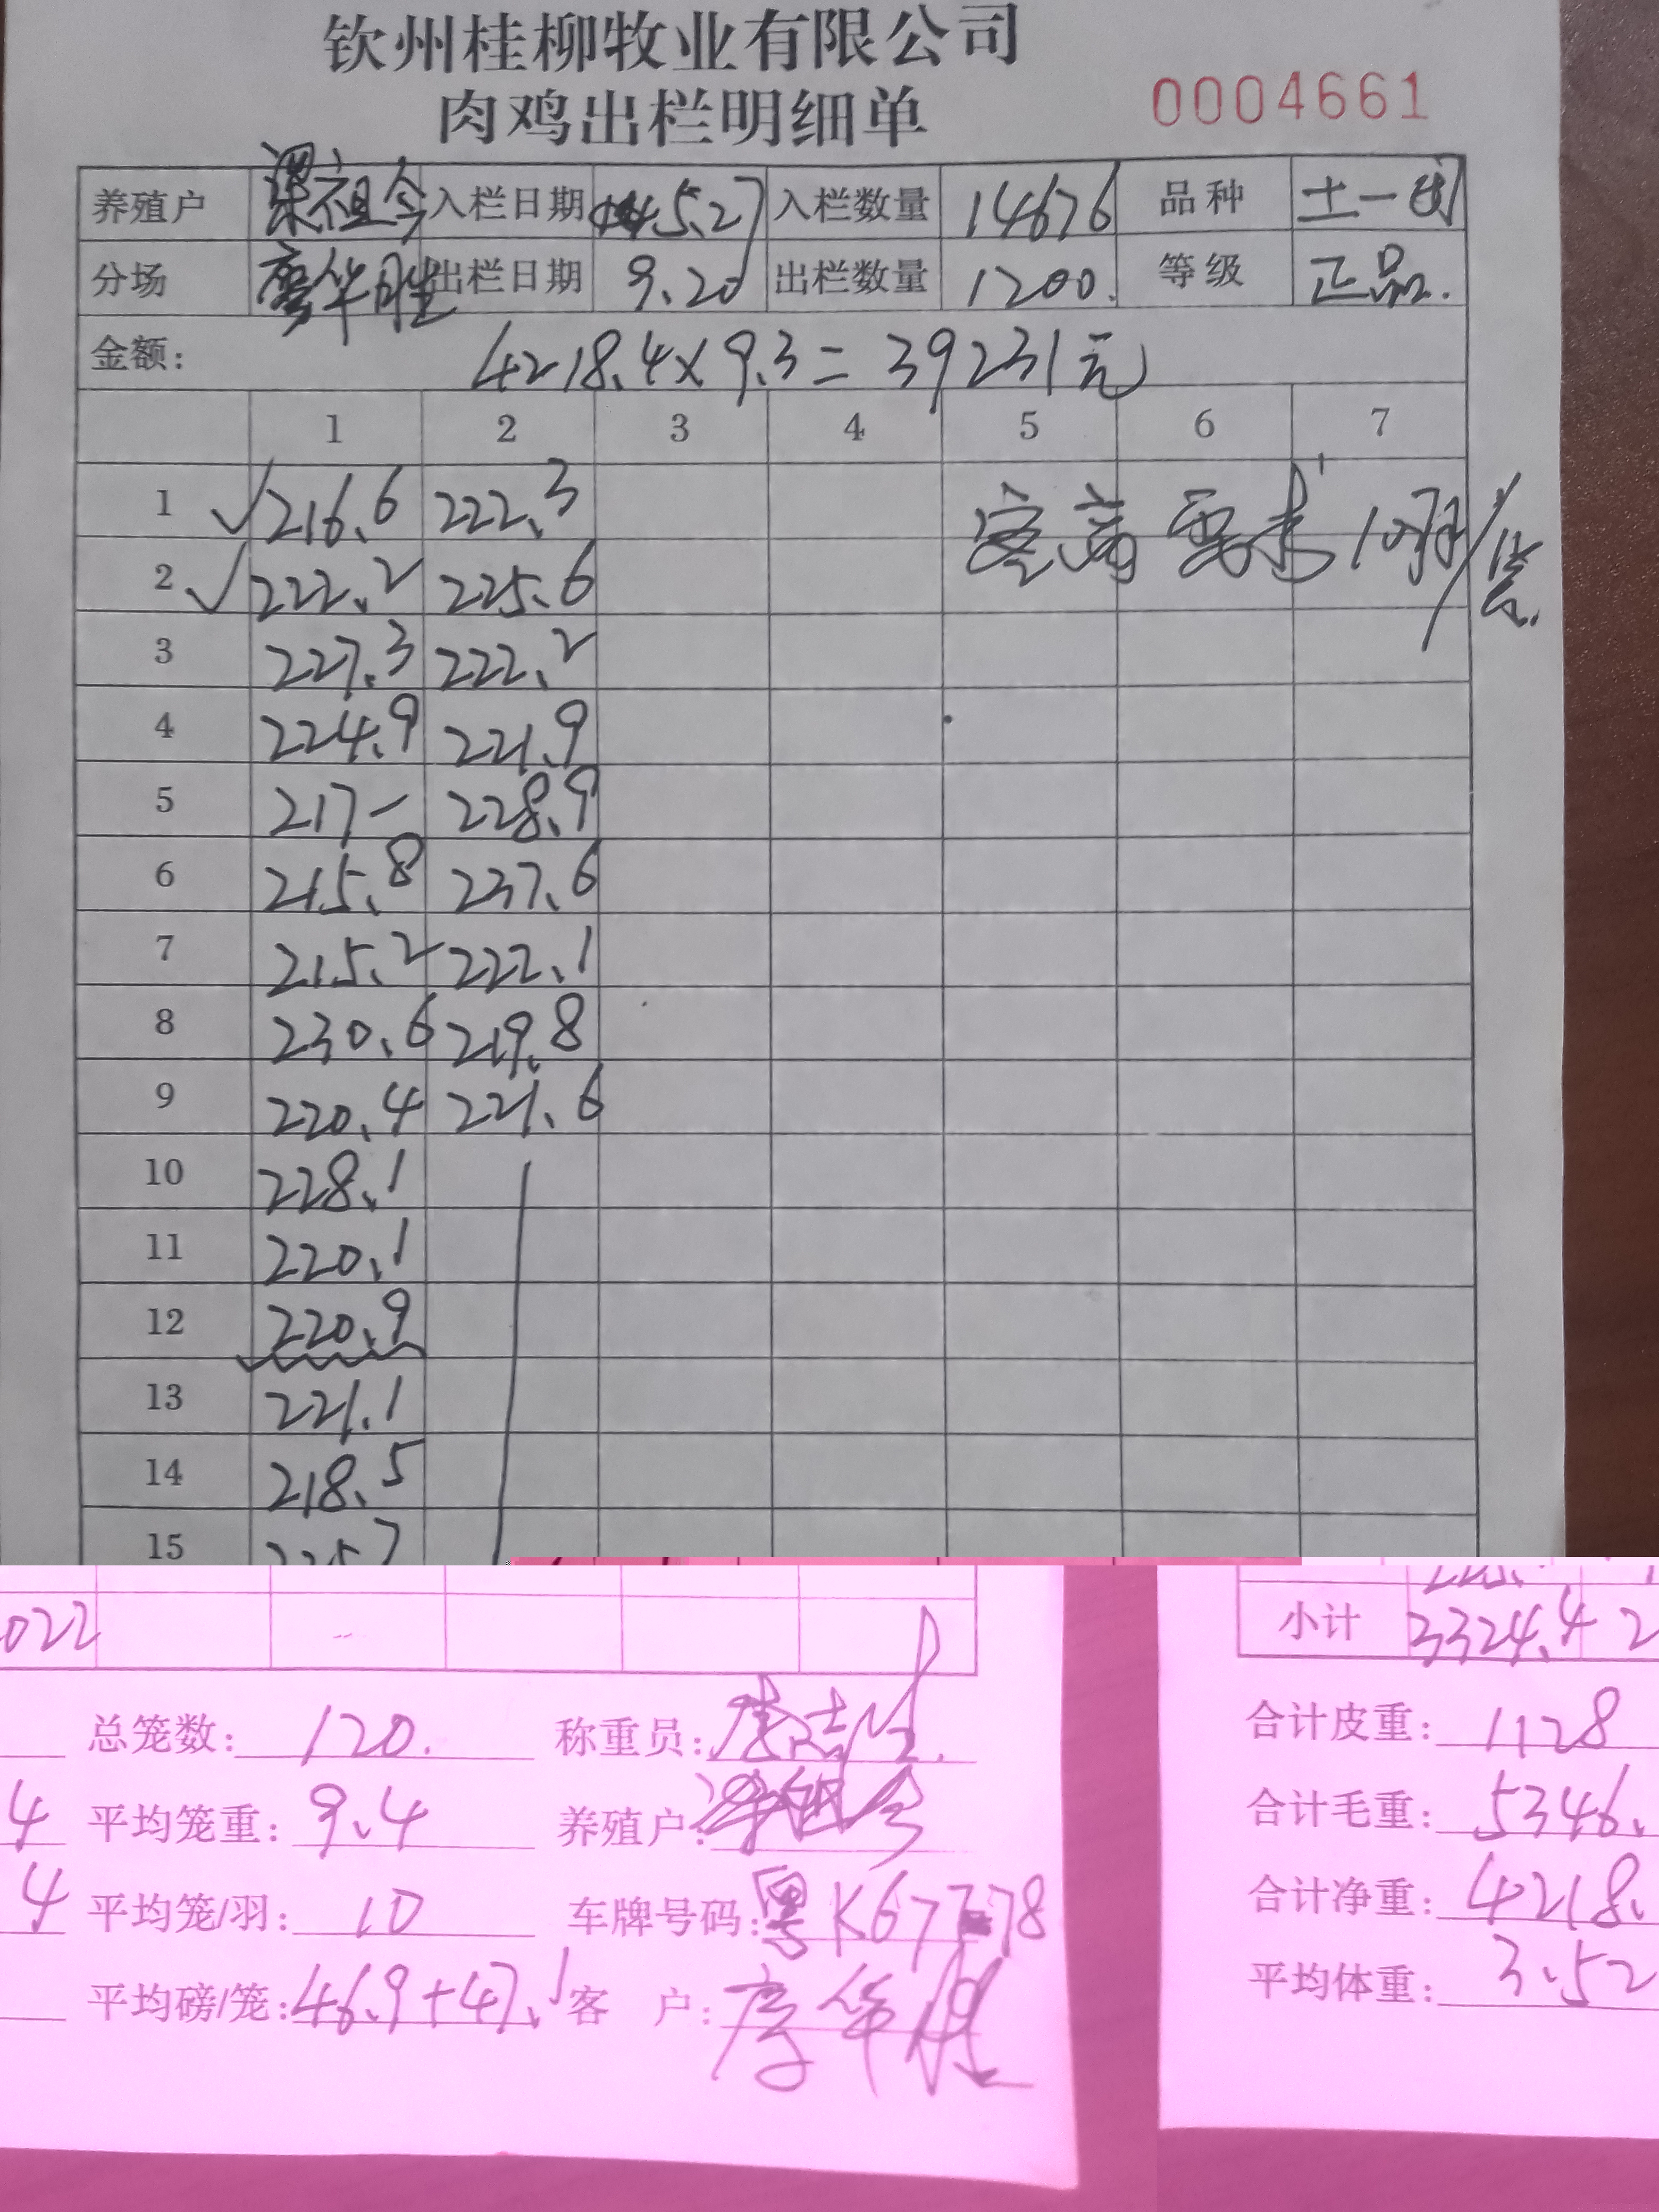 钦州桂柳牧业有限公司
肉鸡出栏明细单 0004661
养殖户 梁祖今 入栏日期 5.27 入栏数量 14676 品种 土一
分场 廖华胜 出栏日期 9.20 出栏数量 1200. 等级 正品.
金额: 4218.4×9.3=39231元
1 2 3 4 5 6 7
1 216.6 222.3 客商要求10羽/笼.
2 222.2 225.6
3 227.3 222.2
4 224.9 221.9
5 217- 228.9
6 215.8 237.6
7 215.2 222.1
8 230.6 219.8
9 220.4 221.6
10 228.1
11 220.1
12 220.9
13 221.1
14 218.5
15 225.7
022 小计 3324.4 2
总笼数: 120. 称重员: 合计皮重: 1128
4 平均笼重: 9.4 养殖户: 合计毛重: 5346.
4 平均笼/羽: 10 车牌号码: 粤K67778 合计净重: 4218.
平均磅/笼: 46.9+47.1 客 户: 廖华胜 平均体重: 3.52